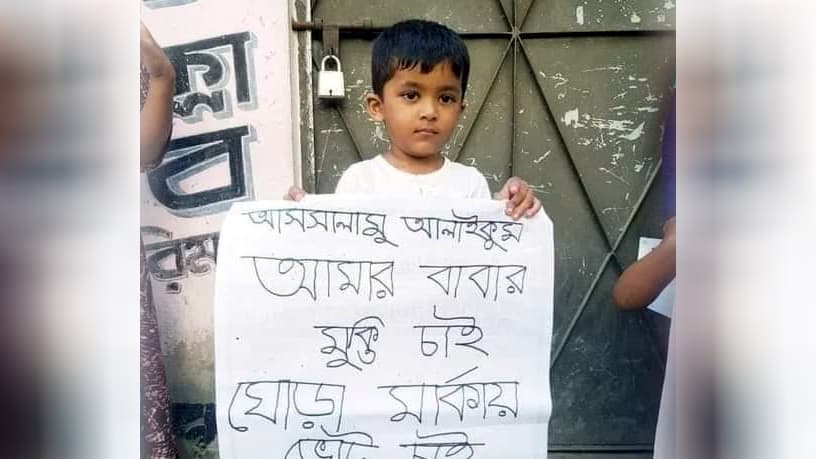 ল্লা
ব
রিম
আসসালামু আলাইকুম
আমার বাবার
মুক্তি চাই
ঘোড়া মার্কায়
ভোট চাই